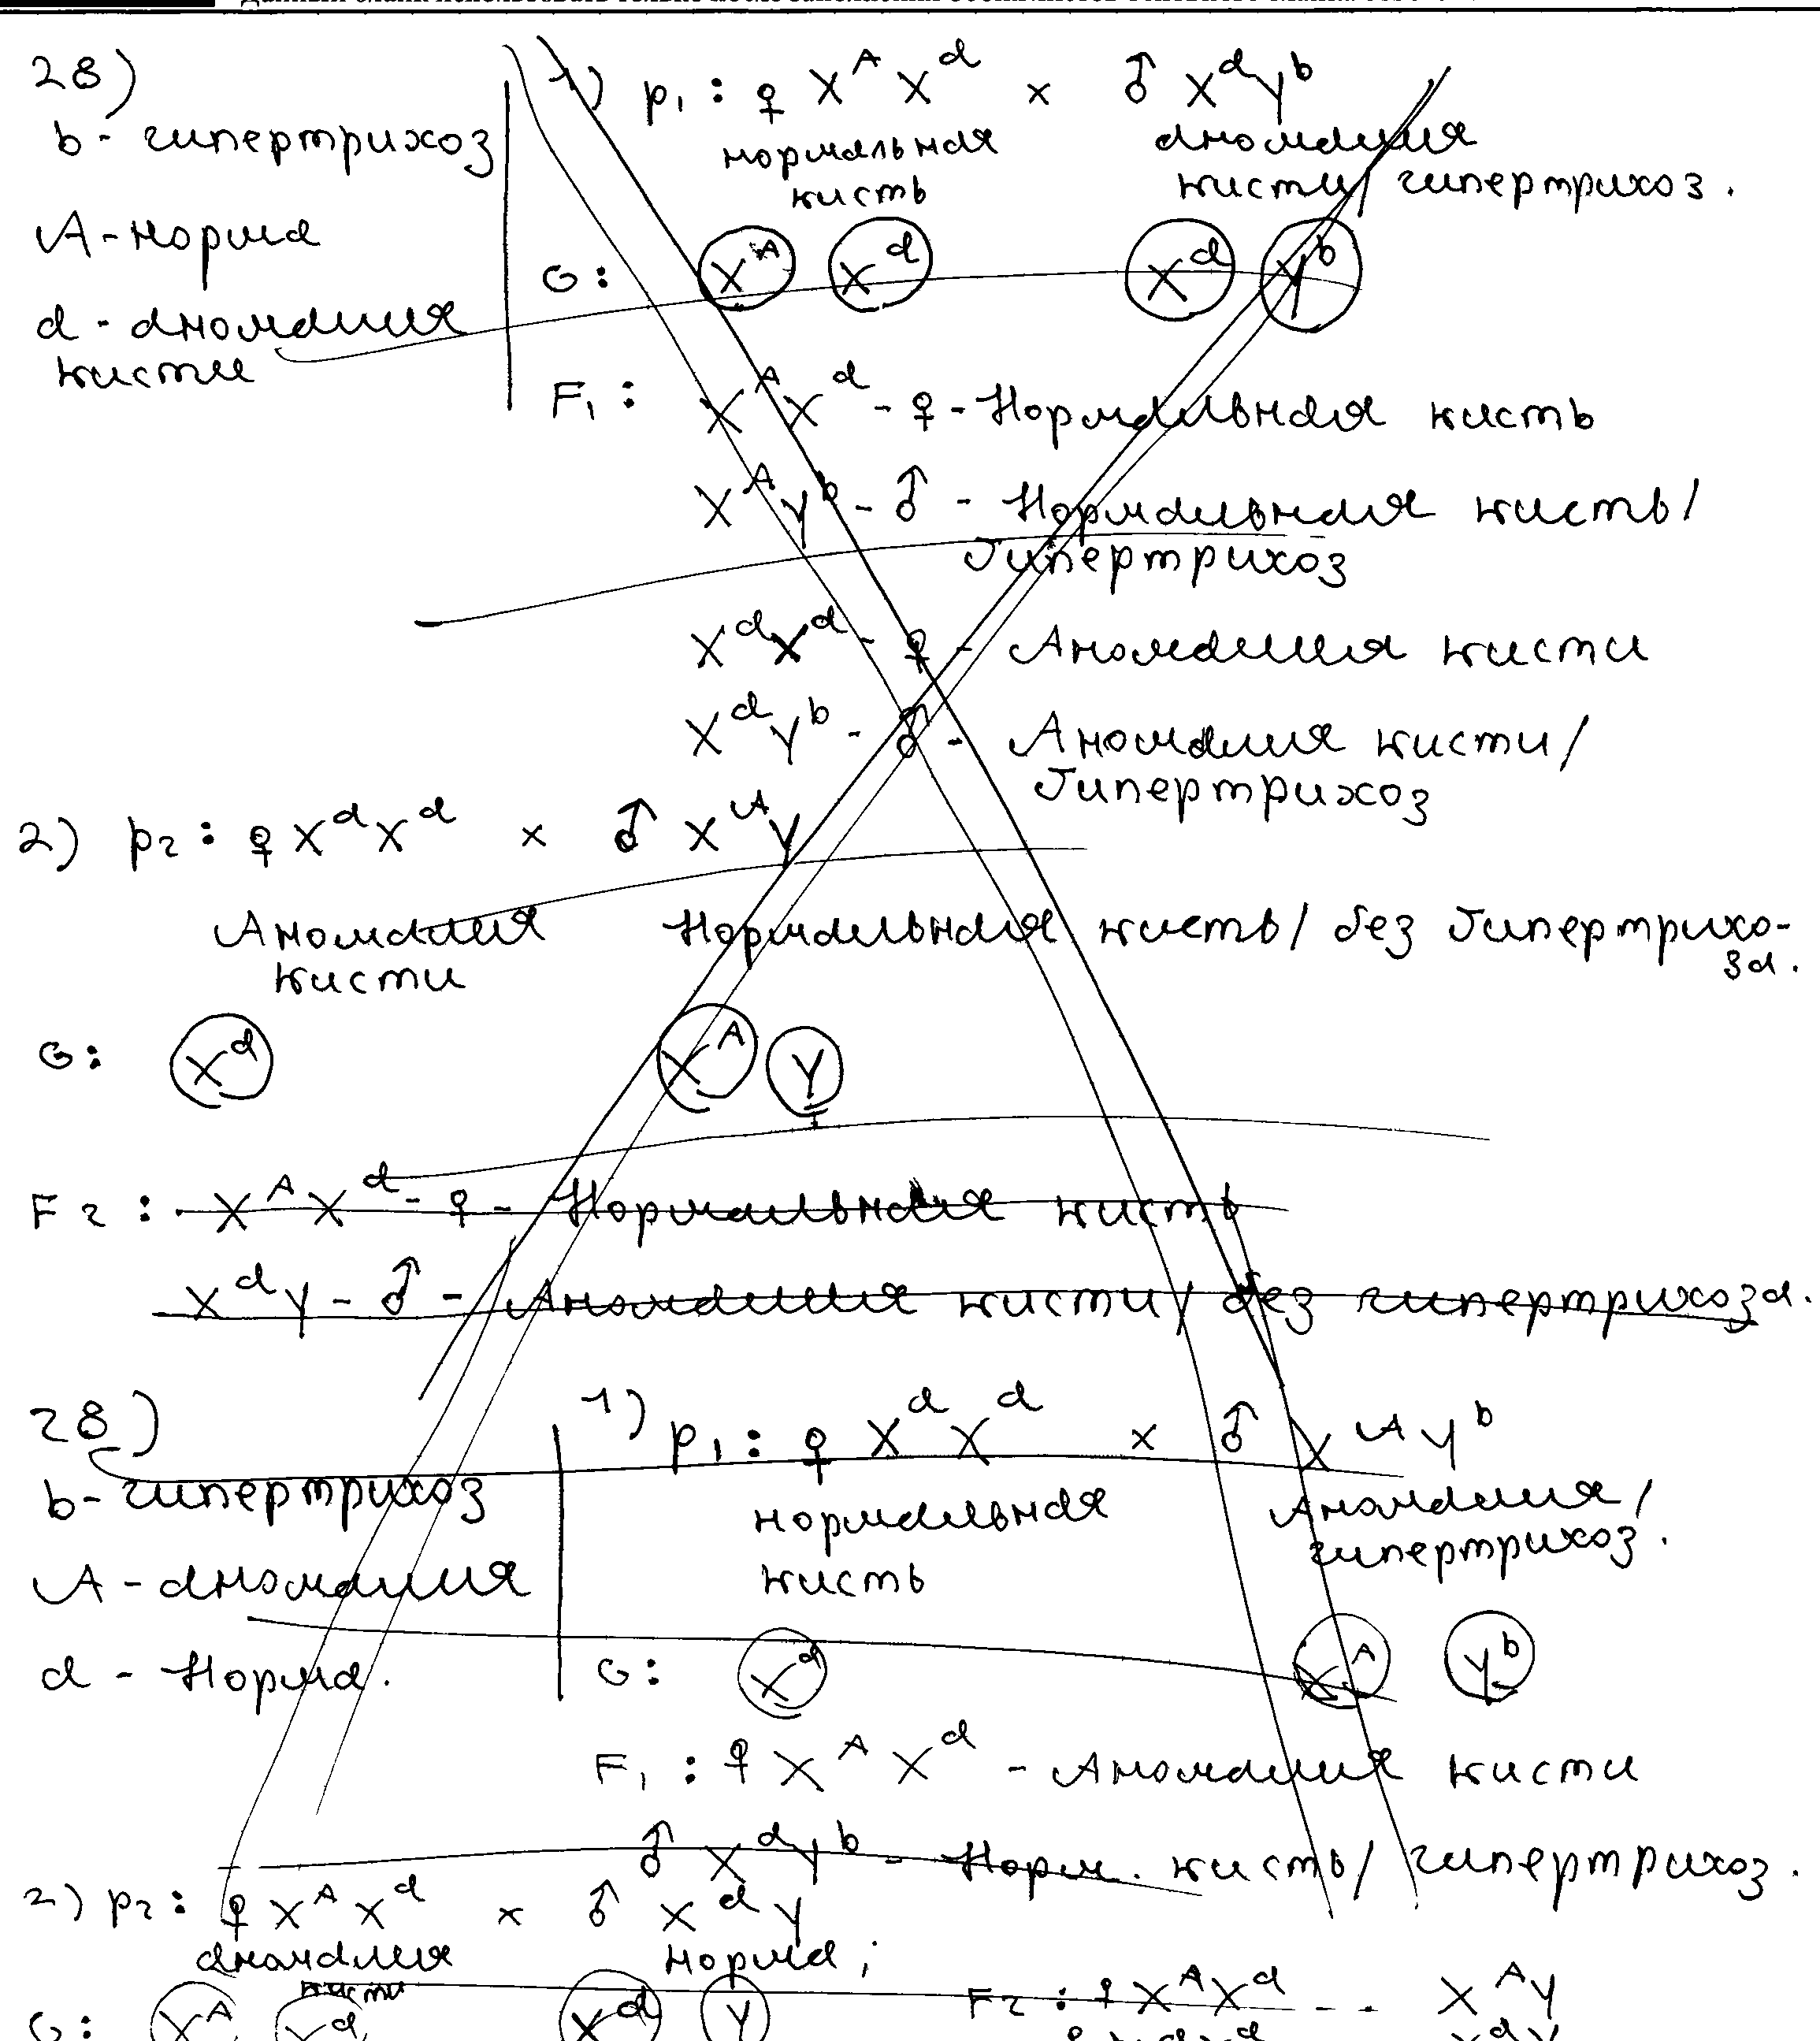 28)
b - гипертрихоз
A - норма
a - аномалия
кисти
1) p₁ : ♀ Xᴬ Xᵃ × ♂ XᵃYᵇ
нормальная аномалия
кисть кисти/ гипертрихоз.
G: Xᴬ Xᵃ Xᵃ Yᵇ
F₁ : XᴬXᵃ - ♀ - Нормальная кисть
XᴬYᵇ - ♂ - Нормальная кисть/
Гипертрихоз
XᵃXᵃ - ♀ - Аномалия кисти
XᵃYᵇ - ♂ - Аномалия кисти/
Гипертрихоз
2) p₂ : ♀ XᵃXᵃ × ♂ XᴬY
Аномалия Нормальная кисть/ без Гипертрихо-
кисти за.
G: Xᵃ Xᴬ Y
F₂ : XᴬXᵃ - ♀ - Нормальная кисть
XᵃY - ♂ - Аномалия кисти/ без гипертрихоза.
28)
b - гипертрихоз
A - аномалия
a - Норма.
1) p₁ : ♀ XᵃXᵃ × ♂ XᴬYᵇ
нормальная Аномалия/
кисть гипертрихоз.
G: Xᵃ Xᴬ Yᵇ
F₁ : ♀ XᴬXᵃ - Аномалия кисти
♂ XᵃYᵇ - Норм. кисть/ гипертрихоз.
2) p₂ : ♀ XᴬXᵃ × ♂ XᵃY
аномалия норма;
кисти
G: Xᴬ Xᵃ Xᵃ Y
F₂ : ♀ XᴬXᵃ - - XᴬY
♀ XᵃXᵃ XᵃY